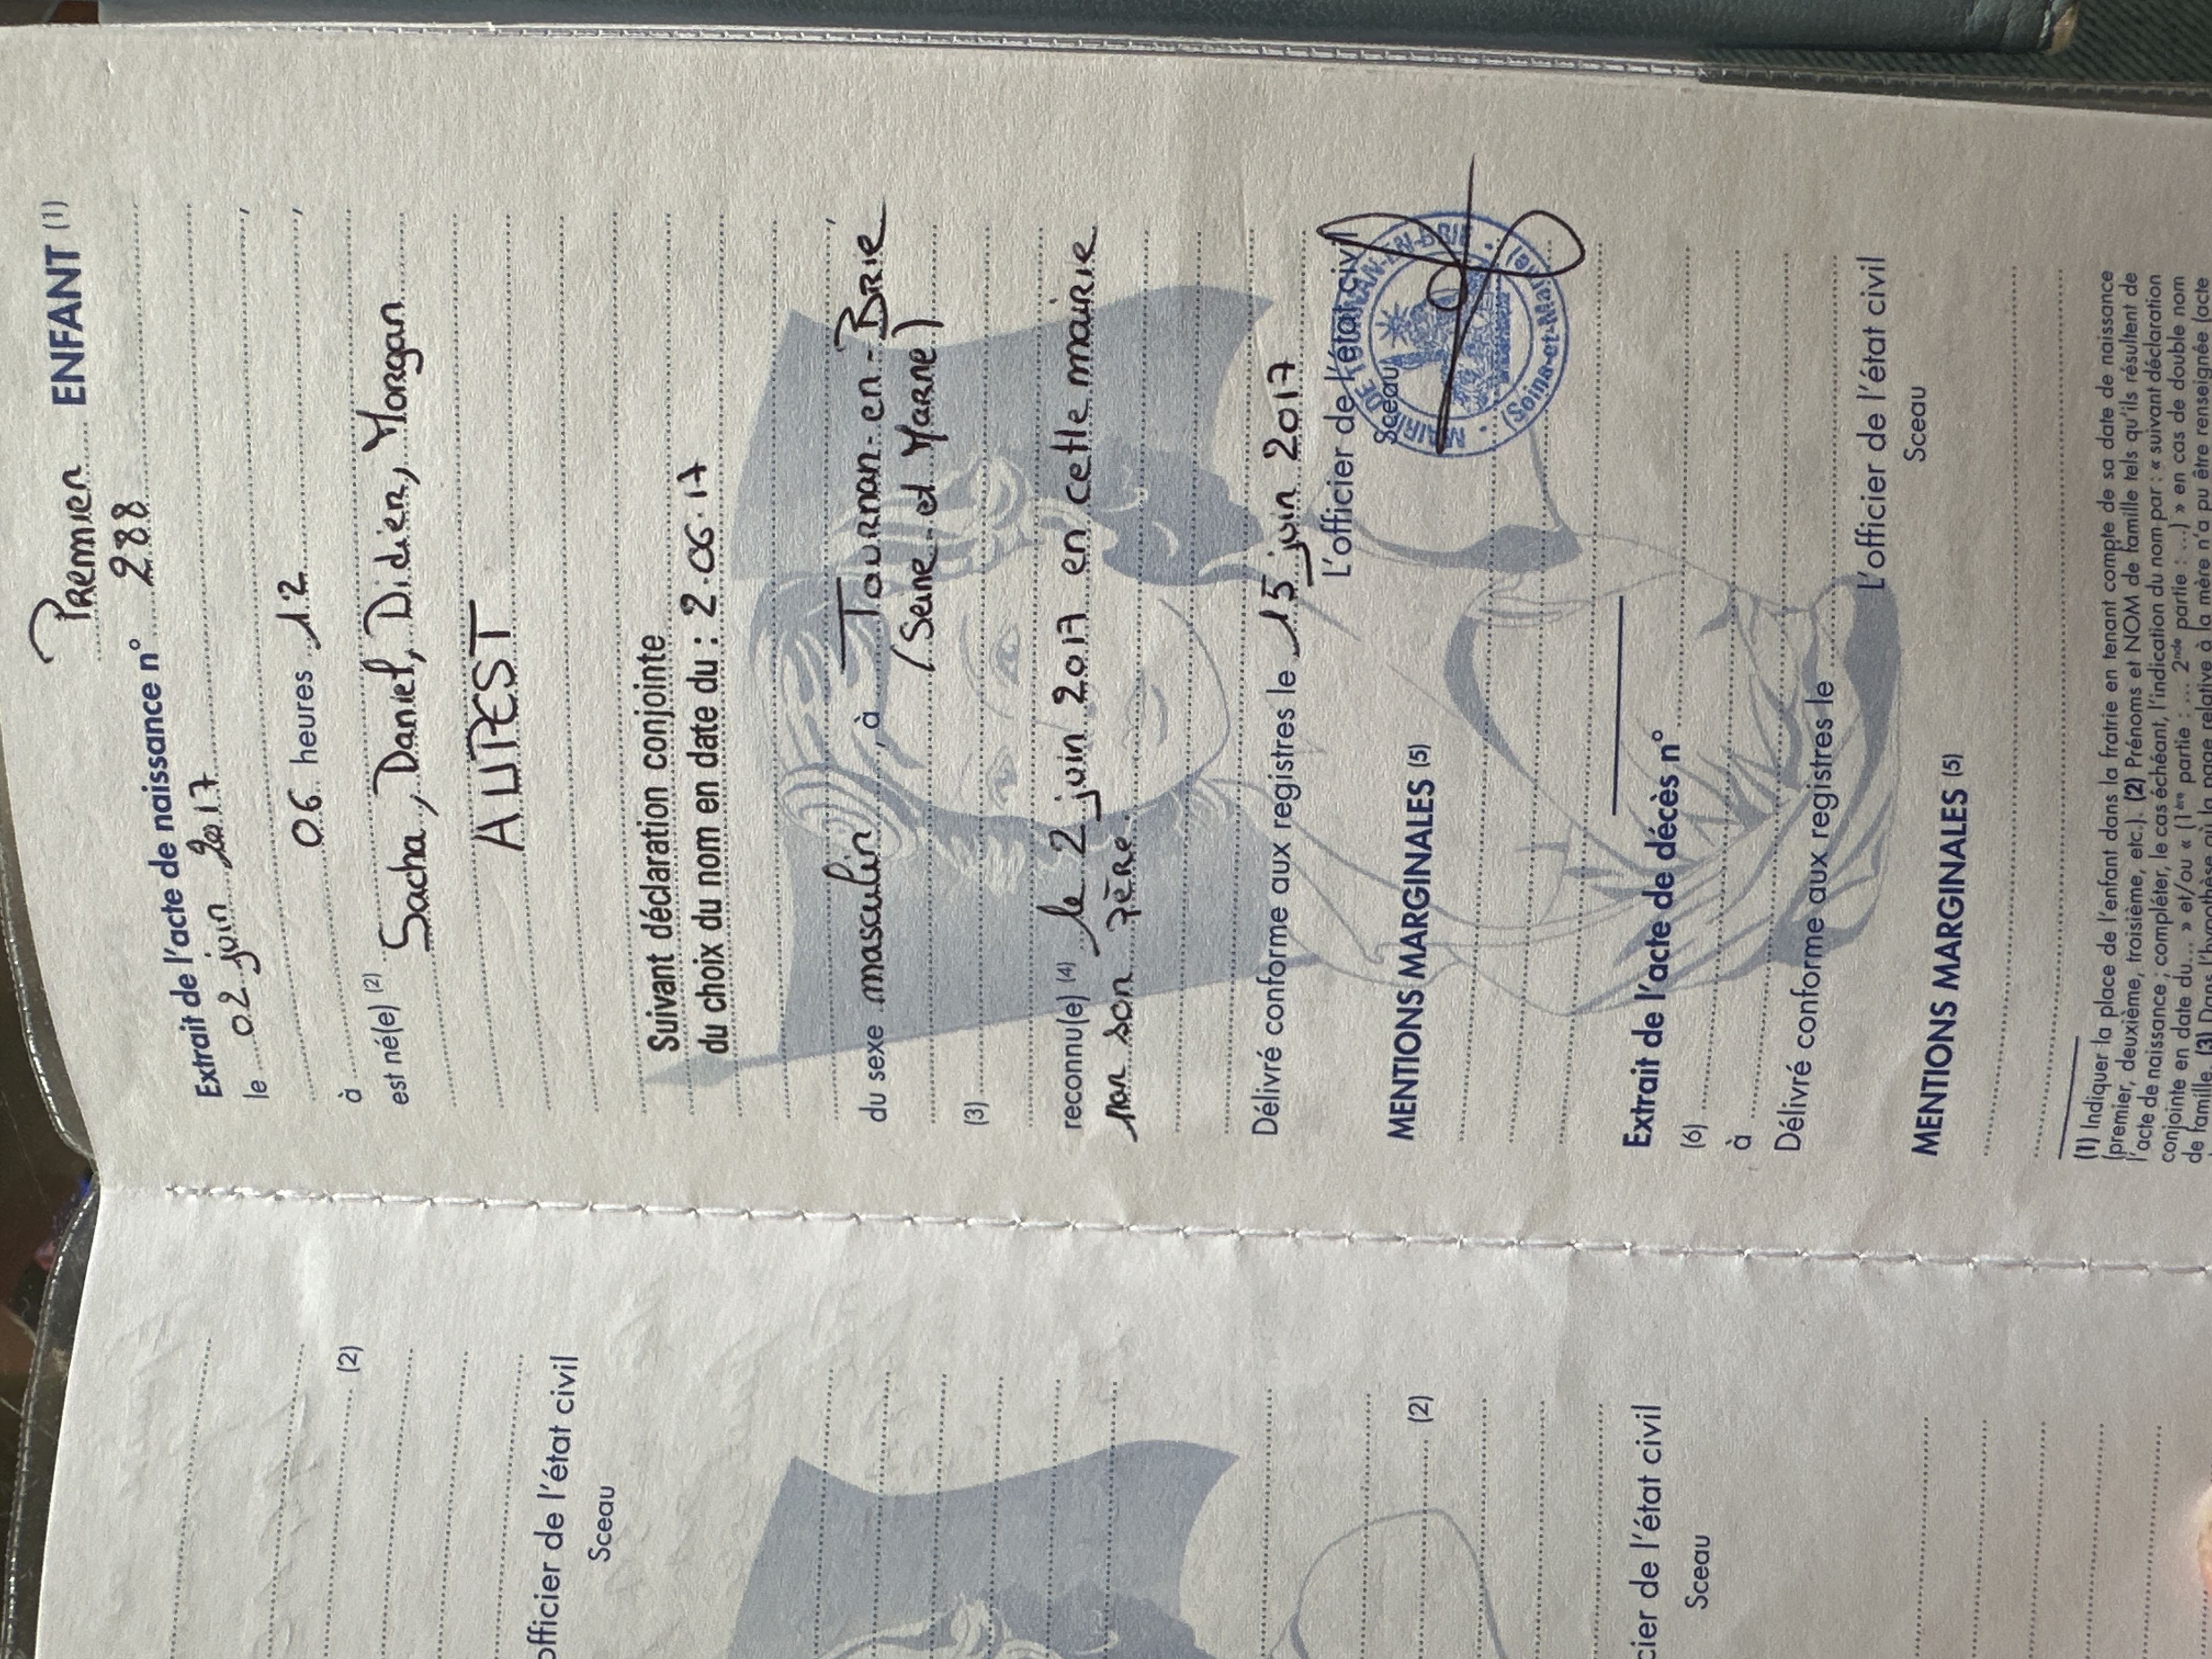 Premier ENFANT (1)
Extrait de l'acte de naissance n° 288
le 02 juin 2017,
à 06 heures 12,
est né(e) (2) Sacha, Daniel, Didier, Morgan
AUPEST
Suivant déclaration conjointe
du choix du nom en date du : 2.06.17
du sexe masculin, à Tournan-en-Brie,
(Seine et Marne)
(3)
reconnu(e) (4) le 2 juin 2017 en cette mairie
par son père.
Délivré conforme aux registres le 15 juin 2017
L'officier de l'état civil
Sceau
MAIRIE DE TOURNAN-EN-BRIE
(Seine-et-Marne)
MENTIONS MARGINALES (5)
Extrait de l'acte de décès n°
(6)
à
Délivré conforme aux registres le
L'officier de l'état civil
Sceau
MENTIONS MARGINALES (5)
(1) Indiquer la place de l'enfant dans la fratrie en tenant compte de sa date de naissance
(premier, deuxième, troisième, etc.). (2) Prénoms et NOM de famille tels qu'ils résultent de
l'acte de naissance ; compléter, le cas échéant, l'indication du nom par : « suivant déclaration
conjointe en date du... » et/ou « (1ère partie : ..... 2nde partie : ...) » en cas de double nom
de famille. (3) Dans l'hypothèse où la page relative à la mère n'a pu être renseignée (acte
(2)
officier de l'état civil
Sceau
(2)
cier de l'état civil
Sceau